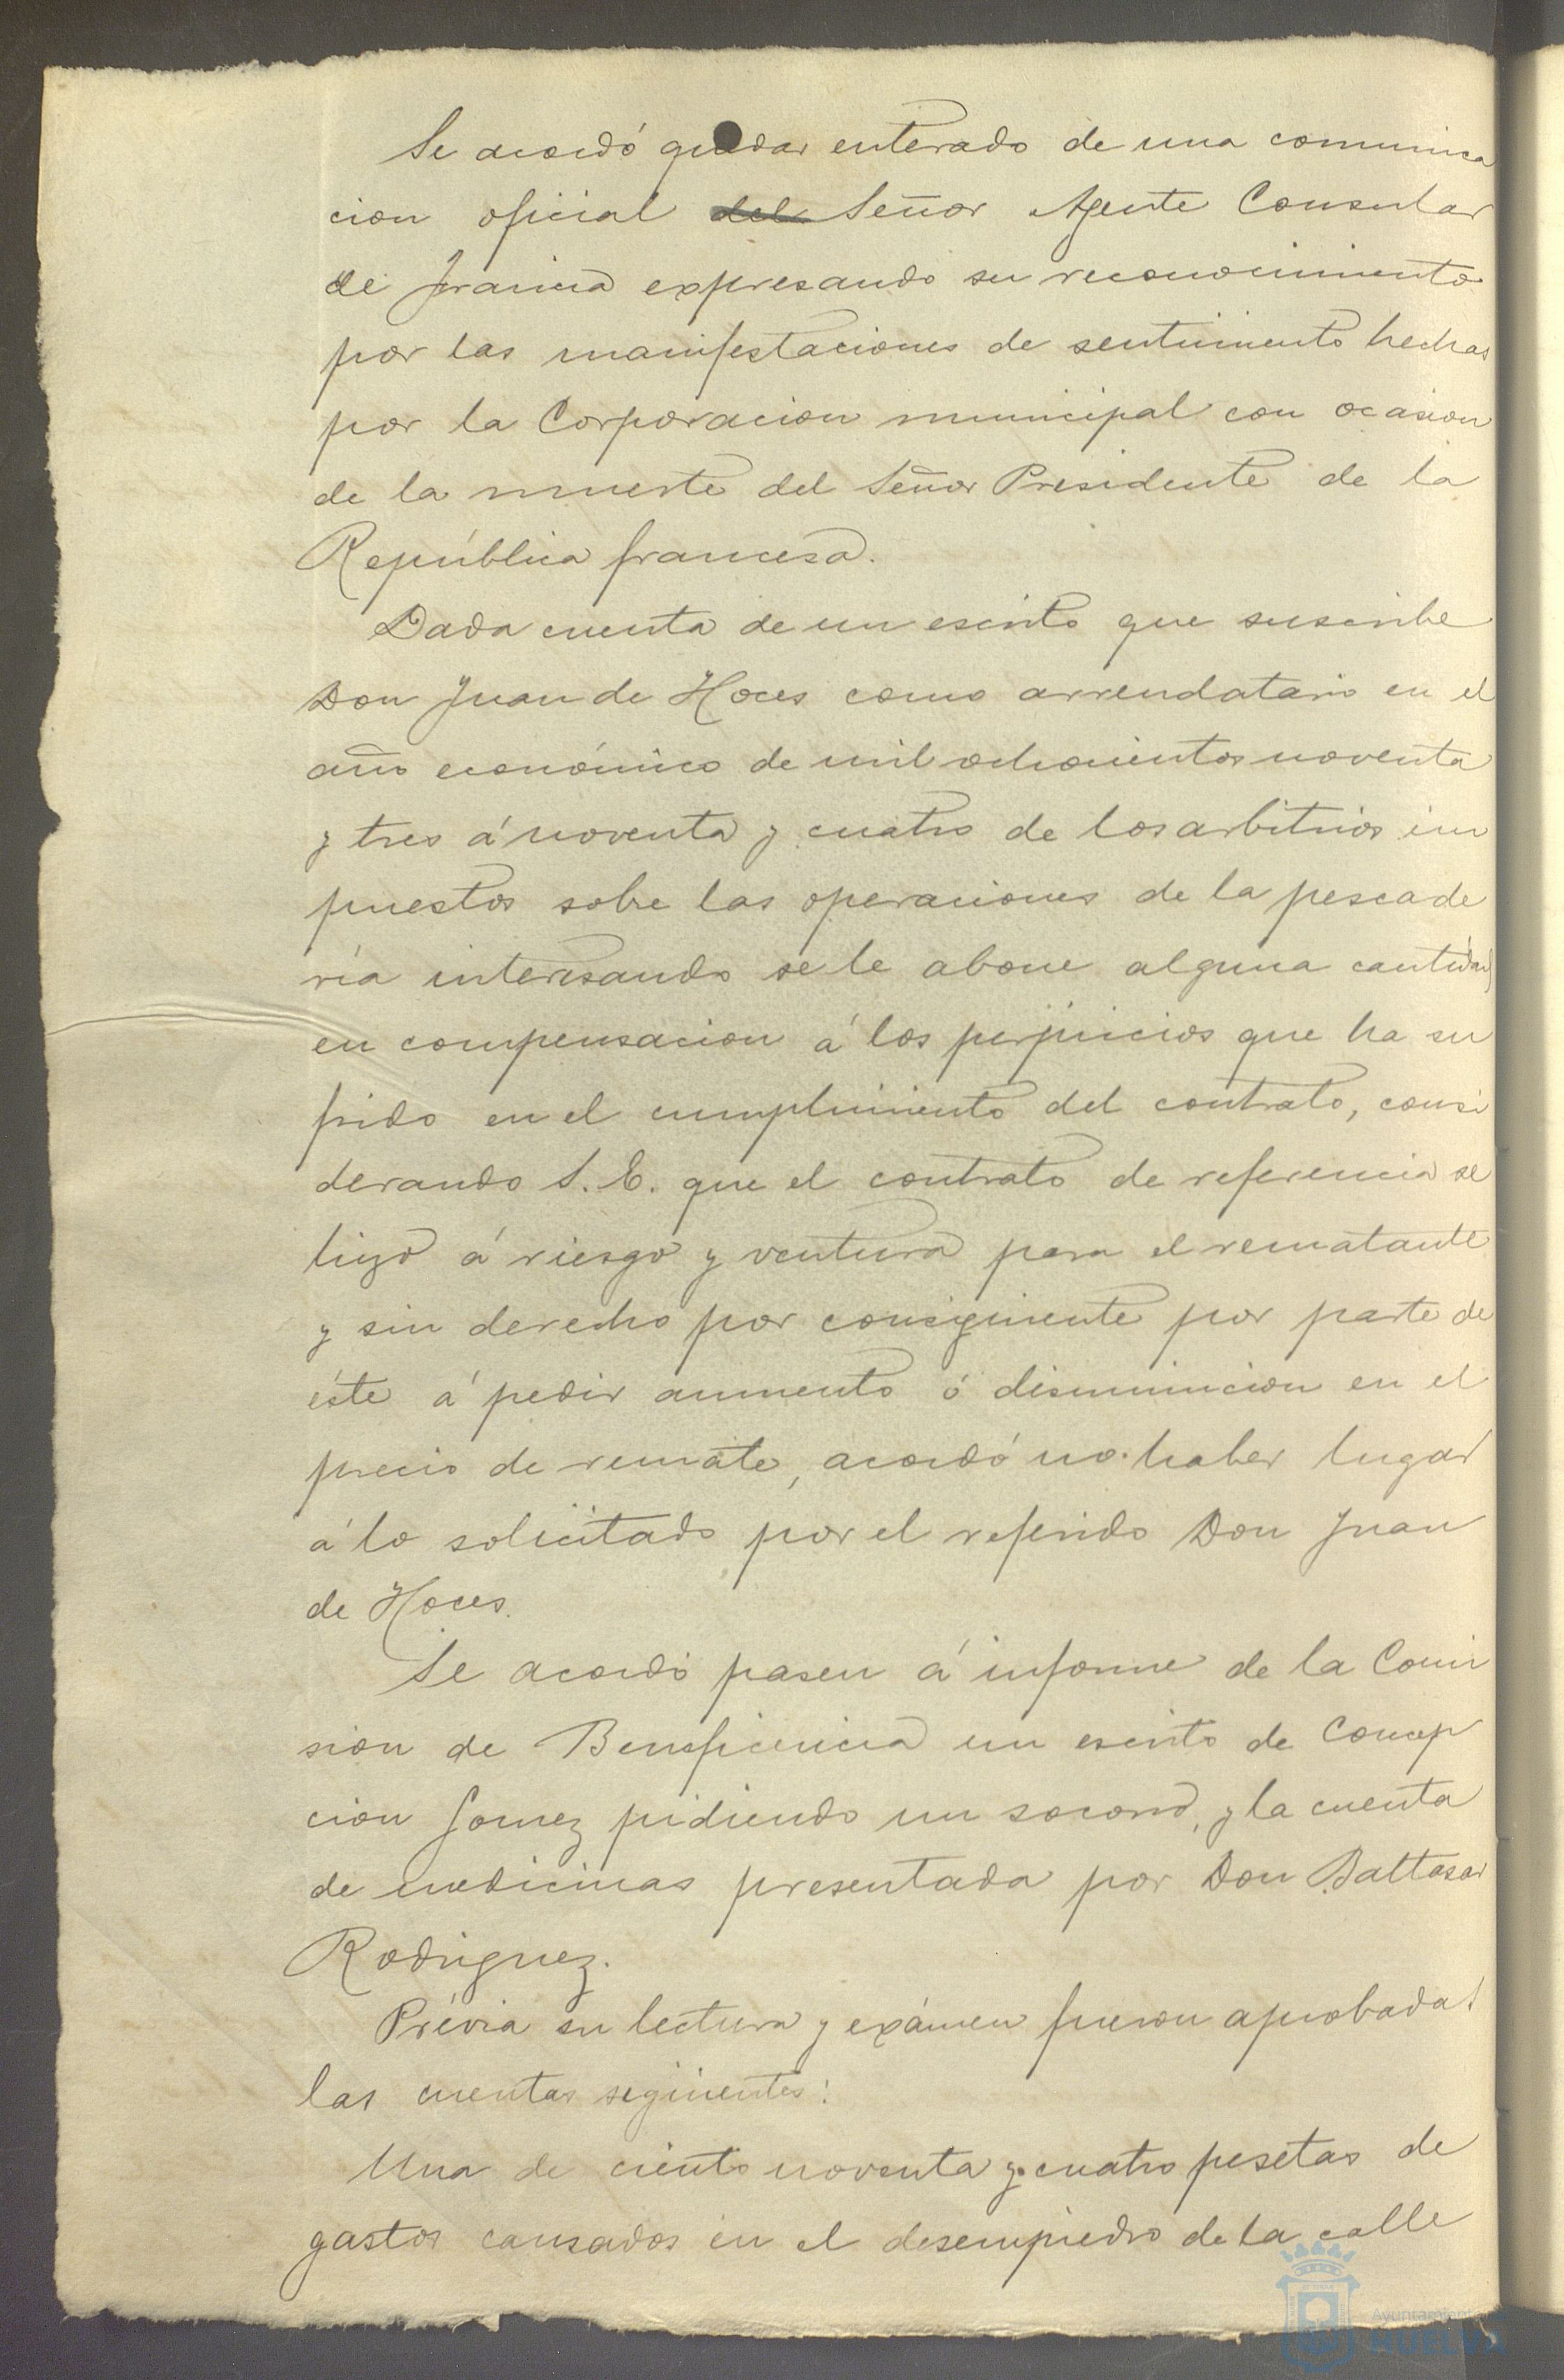 Se acordó quedar enterado de una comunica
cion oficial del Señor Agente Consular
de Francia expresando su reconocimiento
por las manifestaciones de sentimiento hechas
por la Corporacion municipal con ocasion
de la muerte del Señor Presidente de la
República francesa.
Dada cuenta de un escrito que suscribe
Don Juan de Hoces como arrendatario en el
año económico de mil ochocientos noventa
y tres á noventa y cuatro de los arbitrios im
puestos sobre las operaciones de la pescade
ría interesando se le abone alguna cantidad
en compensacion á los perjuicios que ha su
frido en el cumplimiento del contrato, consi
derando S. E. que el contrato de referencia se
hizo á riesgo y ventura para el rematante
y sin derecho por consiguiente por parte de
éste á pedir aumento ó disminucion en el
precio de remate, acordó no haber lugar
á lo solicitado por el referido Don Juan
de Hoces.
Se acordó pasen á informe de la Comi
sion de Beneficencia un escrito de Concep
cion Gomez pidiendo un socorro, y la cuenta
de medicinas presentada por Don Baltasar
Rodriguez.
Prévia su lectura y exámen fueron aprobadas
las cuentas siguientes:
Una de ciento noventa y cuatro pesetas de
gastos causados en el desempiedro de la calle
Ayuntamiento
HUELVA